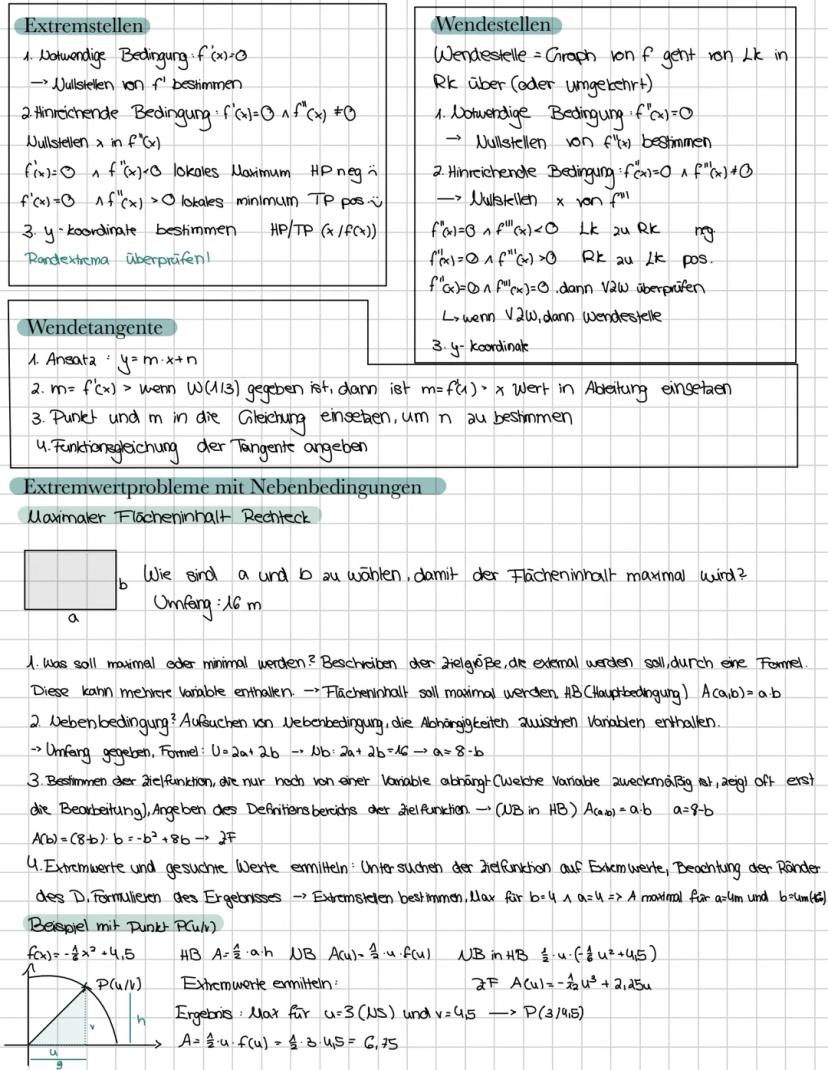 Extremstellen
1. Notwendige Bedingung: f'(x)=0
→ Nullstellen von f' bestimmen
2. Hinreichende Bedingung: f'(x)=0 ∧ f"(x) ≠0
Nullstellen x in f"(x)
f'(x)=0 ∧ f"(x)<0 lokales Maximum HP neg
f'(x)=0 ∧ f"(x) >0 lokales minimum TP pos
3. y-koordinate bestimmen HP/TP (x/f(x))
Randextrema überprüfen!
Wendestellen
Wendestelle = Graph von f geht von Lk in
Rk über (oder umgekehrt)
1. Notwendige Bedingung: f"(x)=0
→ Nullstellen von f"(x) bestimmen
2. Hinreichende Bedingung: f"(x)=0 ∧ f'''(x)≠0
→ Nullstellen x von f'''
f"(x)=0 ∧ f'''(x)<0 Lk zu Rk neg.
f"(x)=0 ∧ f'''(x) >0 Rk zu Lk pos.
f"(x)=0 ∧ f'''(x)=0, dann VZW überprüfen
↳ wenn VZW, dann Wendestelle
3. y-koordinate
Wendetangente
1. Ansatz: y=m·x+n
2. m= f'(x) > wenn W(1/3) gegeben ist, dann ist m=f'(1) > x Wert in Ableitung einsetzen
3. Punkt und m in die Gleichung einsetzen, um n zu bestimmen
4. Funktionsgleichung der Tangente angeben
Extremwertprobleme mit Nebenbedingungen
Maximaler Flächeninhalt Rechteck
b
a
Wie sind a und b zu wählen, damit der Flächeninhalt maximal wird?
Umfang: 16 m
1. Was soll maximal oder minimal werden? Beschreiben der Zielgröße, die extremal werden soll, durch eine Formel.
Diese kann mehrere Variable enthalten. → Flächeninhalt soll maximal werden, HB (Hauptbedingung) A(a,b)= a·b
2. Nebenbedingung? Aufsuchen von Nebenbedingung, die Abhängigkeiten zwischen Variablen enthalten.
→ Umfang gegeben, Formel: U=2a+2b → Nb: 2a+2b=16 → a=8-b
3. Bestimmen der Zielfunktion, die nur noch von einer Variable abhängt (welche Variable zweckmäßig ist, zeigt oft erst
die Bearbeitung), Angeben des Definitionsbereichs der Zielfunktion. → (NB in HB) A(a,b)=a·b a=8-b
A(b)=(8-b)·b=-b²+8b → ZF
4. Extremwerte und gesuchte Werte ermitteln: Untersuchen der Zielfunktion auf Extremwerte, Beachtung der Ränder
des D, Formulieren des Ergebnisses → Extremstellen bestimmen, Max für b=4 ∧ a=4 => A maximal für a=4m und b=4m
Beispiel mit Punkt P(u/v)
f(x)=-½x²+4,5 HB A=½·a·h NB A(u)=½·u·f(u) NB in HB
P(u/v)
v
h
u
g
Extremwerte ermitteln: ZF A(u)=-1/12 u³+2,25u
Ergebnis: Max für u=3 (NS) und v=4,5 → P(3/4,5)
A=½·u·f(u)=½·3·4,5= 6,75